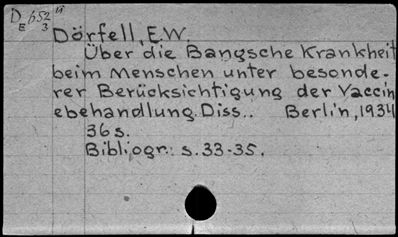 D 652 vi
E 3
Dörfell, E.W.
Über die Bangsche Krankheit
beim Menschen unter besonde-
rer Berücksichtigung der Vaccin
ebehandlung. Diss.. Berlin, 1934
36 s.
Bibliogr.: s. 33-35.